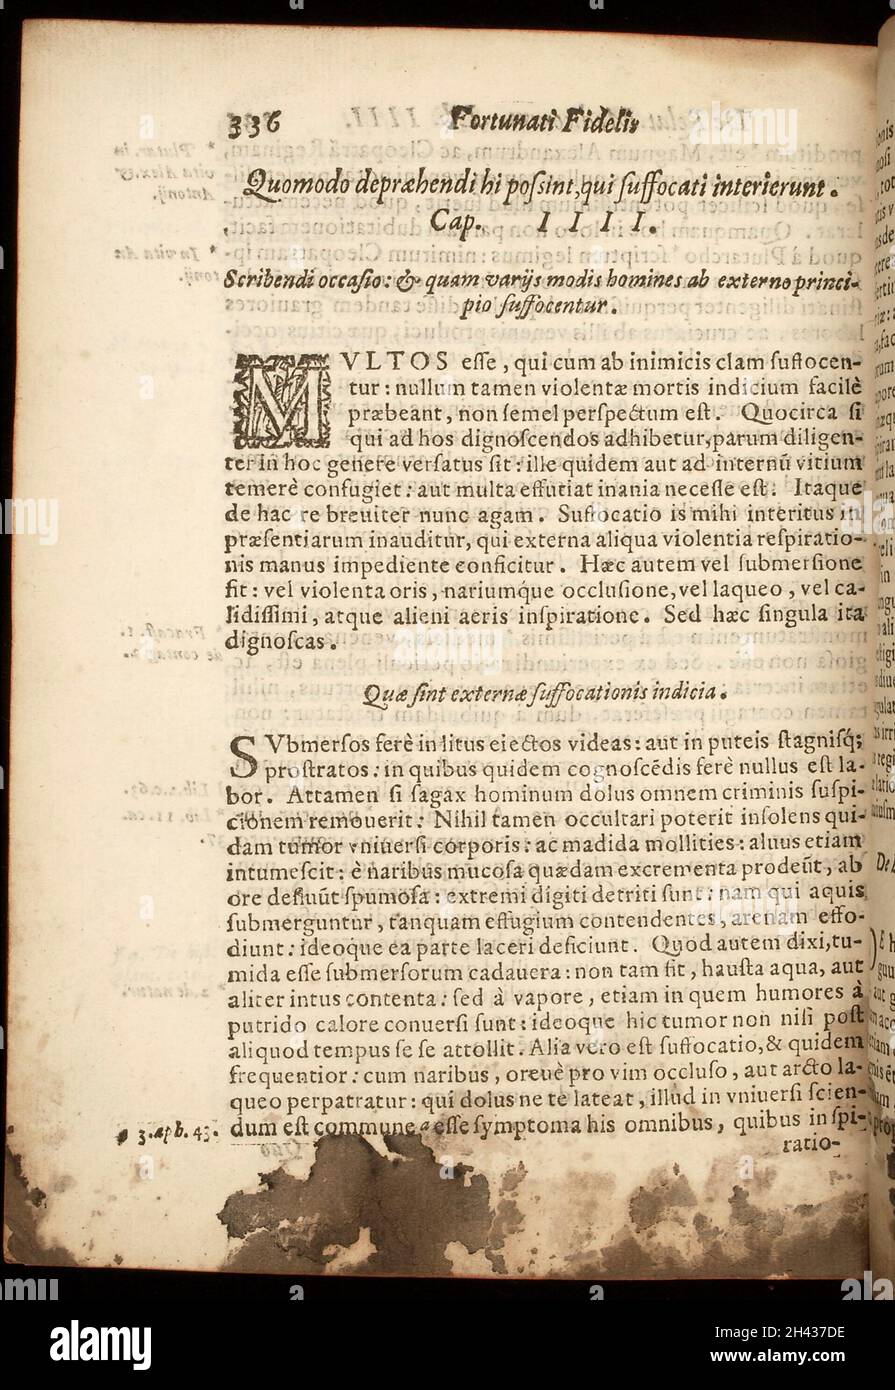 336 Fortunati Fidelis
Quomodo depræhendi hi poſsint, qui ſuffocati interierunt.
Cap. I I I I.
Scribendi occaſio: & quam varijs modis homines ab externo princi-
pio ſuffocentur.
MVLTOS eſſe, qui cum ab inimicis clam ſuffocen-
tur: nullum tamen violentæ mortis indicium facilè
præbeant, non ſemel perſpectum eſt. Quocirca ſi
qui ad hos dignoſcendos adhibetur, parum diligen-
ter in hoc genere verſatus ſit: ille quidem aut ad internũ vitium
temerè confugiet: aut multa effutiat inania neceſſe eſt. Itaque
de hac re breuiter nunc agam. Suffocatio is mihi interitus in
præſentiarum inauditur, qui externa aliqua violentia reſpiratio-
nis manus impediente conficitur. Hæc autem vel ſubmerſione
fit: vel violenta oris, nariumq́ue occluſione, vel laqueo, vel ca-
lidiſſimi, atque alieni aeris inſpiratione. Sed hæc ſingula ita
dignoſcas.
Quæ ſint externæ ſuffocationis indicia.
SVbmerſos ferè in litus eiectos videas: aut in puteis ſtagniſq́;
proſtratos: in quibus quidem cognoſcẽdis ferè nullus eſt la-
bor. Attamen ſi ſagax hominum dolus omnem criminis ſuſpi-
cionem remouerit: Nihil tamen occultari poterit inſolens qui-
dam tumor vniuerſi corporis: ac madida mollities: aluus etiam
intumeſcit: è naribus mucoſa quædam excrementa prodeũt, ab
ore defluũt ſpumoſa: extremi digiti detriti ſunt: nam qui aquis
ſubmerguntur, tanquam effugium contendentes, arenam effo-
diunt: ideoque ea parte laceri deficiunt. Quod autem dixi, tu-
mida eſſe ſubmerſorum cadauera: non tam fit, hauſta aqua, aut
aliter intus contenta: ſed à vapore, etiam in quem humores à
putrido calore conuerſi ſunt: ideoque hic tumor non niſi poſt
aliquod tempus ſe ſe attollit. Alia vero eſt ſuffocatio, & quidem
frequentior: cum naribus, oreuè pro vim occluſo, aut arcto la-
queo perpatratur: qui dolus ne te lateat, illud in vniuerſi ſcien-
dum eſt commune * eſſe ſymptoma his omnibus, quibus inſpi-
* 3. aph. 43.
ratio-
alamy
Image ID: 2H437DE
www.alamy.com